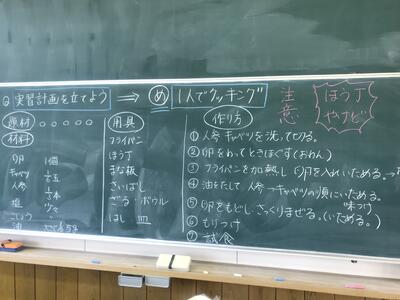 Q 実習計画を立てよう → め 1人でクッキング
注意 ほう丁 やけど
題材 ○○○○○
材料
卵 1個
キャベツ 玉
人参 本
塩 少々
こしょう
油
用具
フライパン
ほう丁
まな板
さいばし
ざる ボウル
はし 皿
作り方
① 人参 キャベツを洗って切る。
② 卵をわってときほぐす(おわん)
③ フライパンを加熱し 卵を入れいためる。→
④ 油をたして 人参→キャベツの順にいためる。
⑤ 卵をもどし、さっくりまぜる。(いためる。) 味つけ
⑥ もりつけ
⑦ 試食